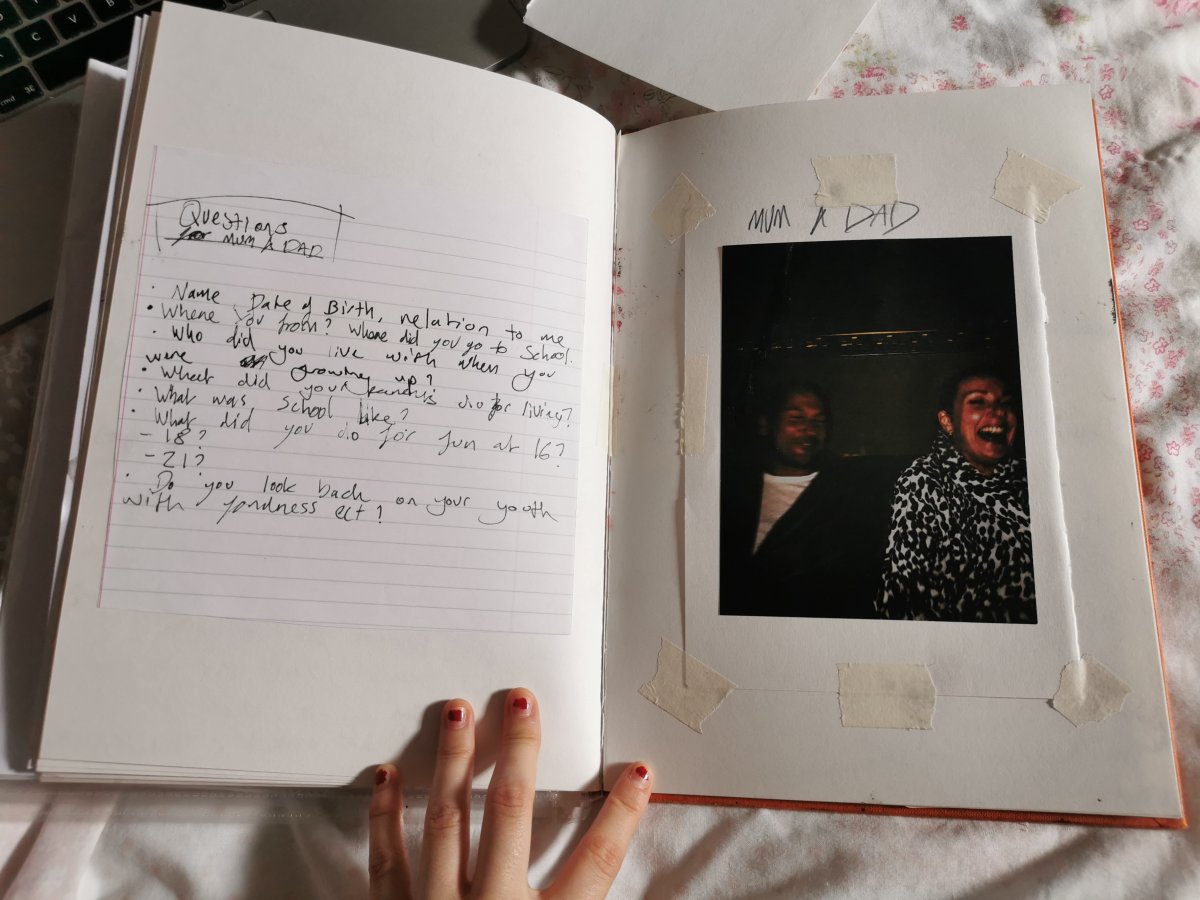 Questions
for MUM & DAD
· Name, Date of Birth, relation to me
• Where you from? Where did you go to School.
· Who did you live with when you
were growing up?
• What did your parents do for living?
· What was school like?
· What did you do for fun at 16?
- 18?
- 21?
· Do you look back on your youth
with fondness ect?
MUM & DAD
cmd